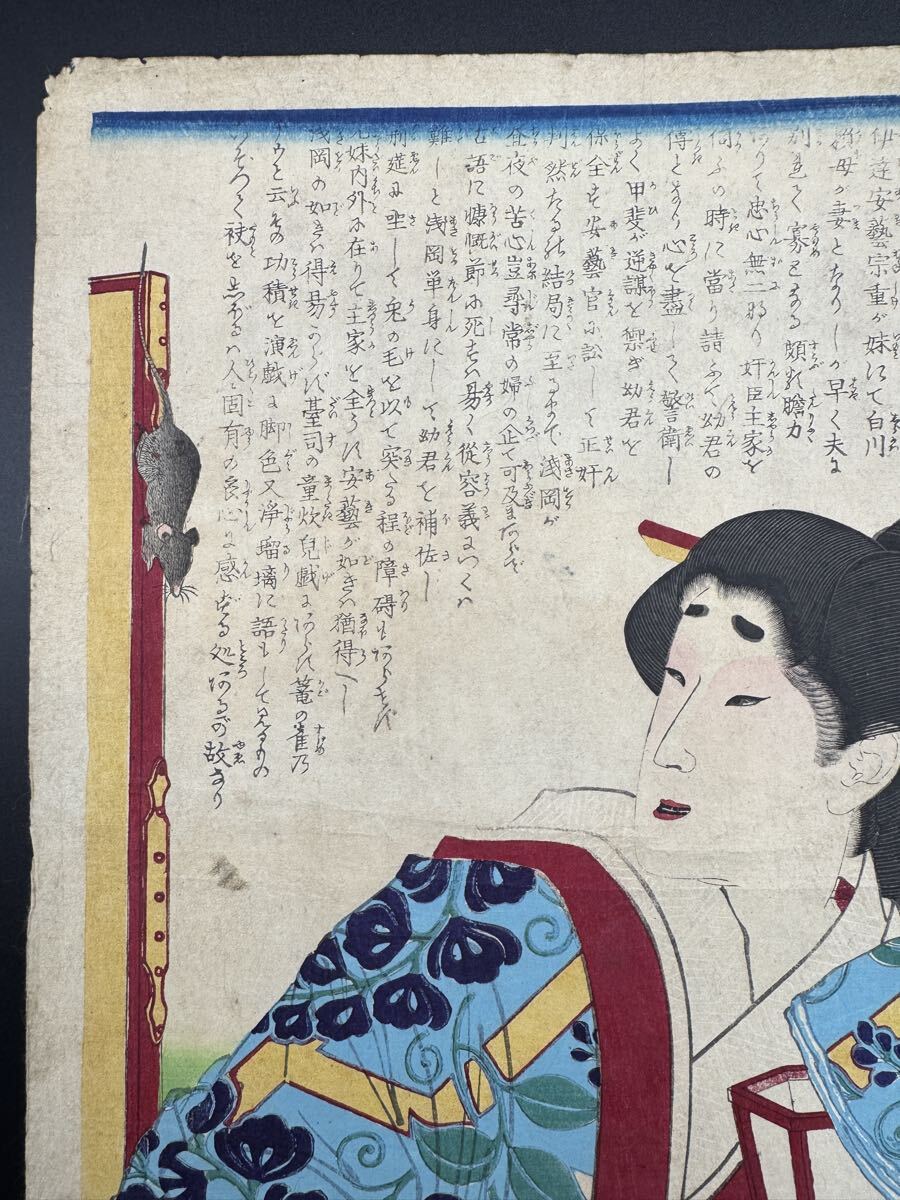 伊達安藝宗重が妹にて白川
義母が妻となりしが早く夫に
別れて寡となる頗る膽力
ありて忠心無二なり奸臣主家を
伺ふの時に當り請ふて幼君の
傅となり心を盡して警衛し
よく甲斐が逆謀を禦ぎ幼君を
保全せり安藝官に訟して正奸
判然たるの結局に至るまで浅岡が
昼夜の苦心豈尋常の婦の企て可及ならんや
古語に慷慨節に死するは易く從容義につくは
難しと浅岡単身にして幼君を補佐し
荊莚に坐して兎の毛を以て突たる程の障碍もあらせず
兄妹内外に在りて主家を全うす安藝が如きは猶得べし
浅岡の如きは得易からず䑓司の童炊兒戯にあらず篭の雀乃
云々其功積を演戯に脚色又淨瑠璃に語りして見るもの
袂をしぼるは人固有の良心に感ずる処あるが故なり